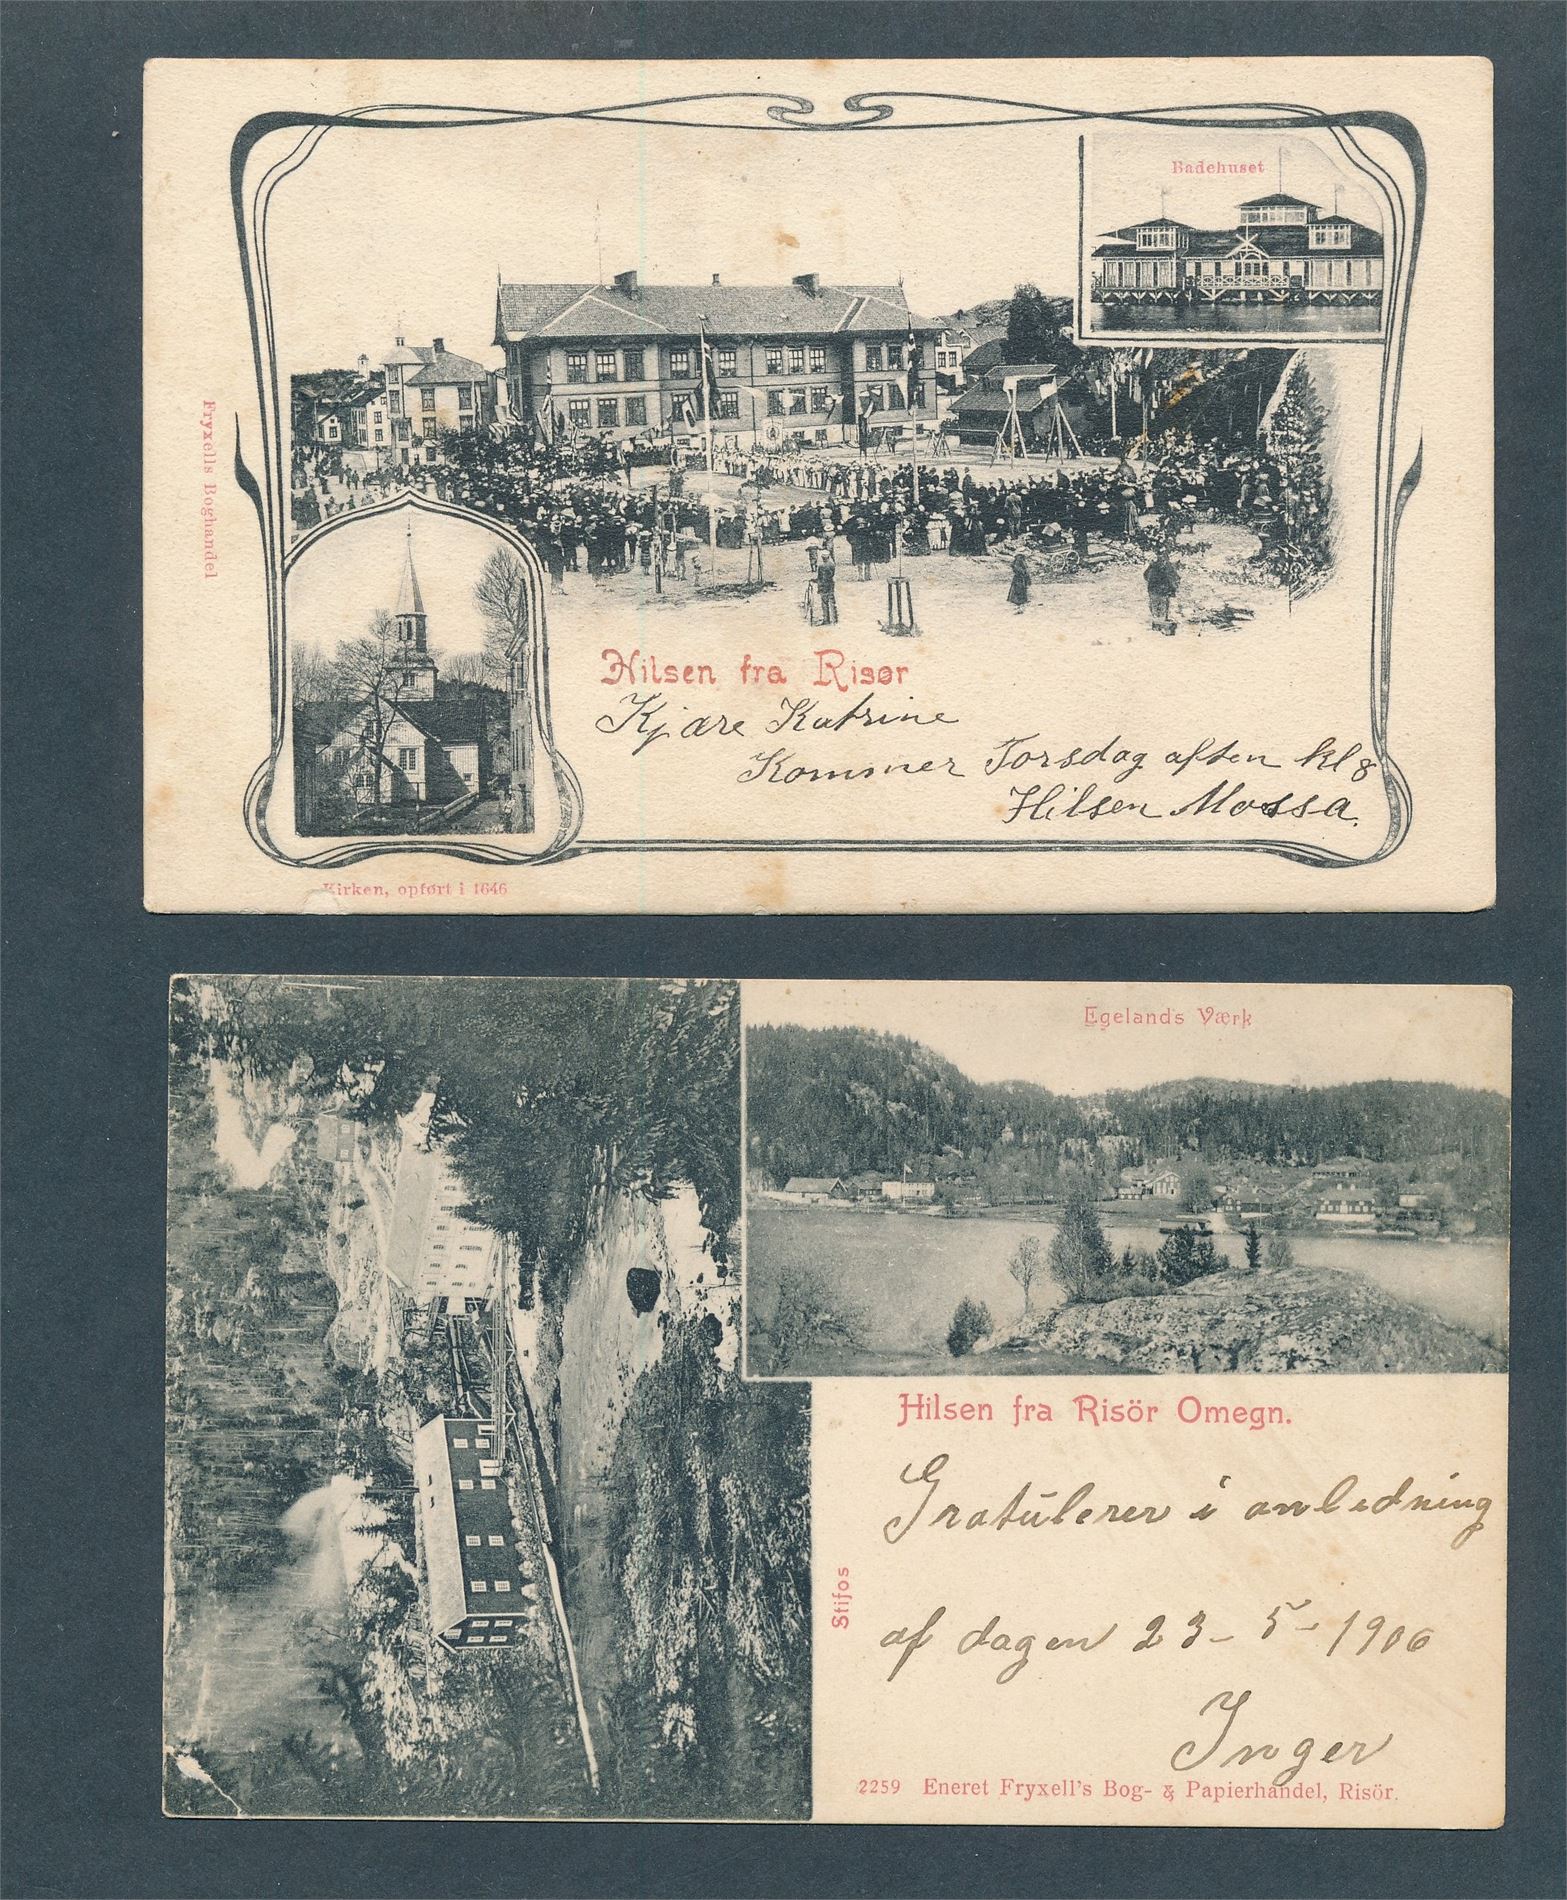 Badehuset
Fryxells Boghandel
Hilsen fra Risør
Kjære Katrine
Kommer Torsdag aften kl 8
Hilsen Mossa.
Kirken, opført i 1646
Egelands Værk
Hilsen fra Risör Omegn.
Gratulerer i anledning
af dagen 23-5-1906
Inger
Stifos
2259 Eneret Fryxell's Bog- & Papierhandel, Risör.